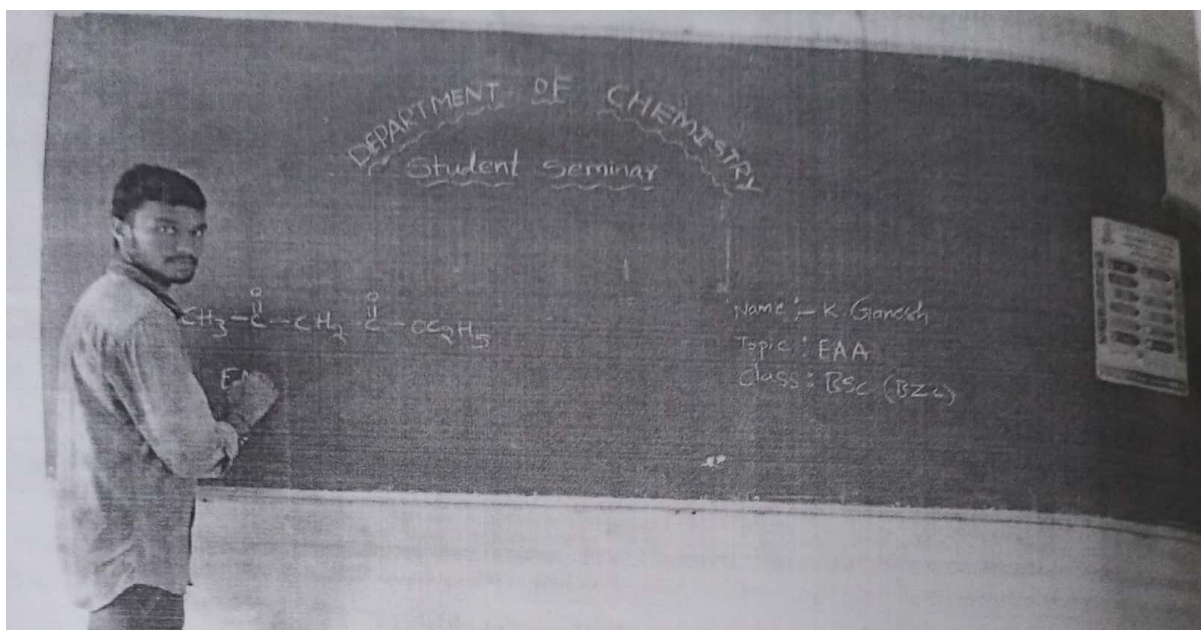 DEPARTMENT OF CHEMISTRY
Student Seminar
O O
CH3 - C - CH2 - C - OC2H5
EA
Name :- K Ganesh
Topic : EAA
Class : BSc (BZC)